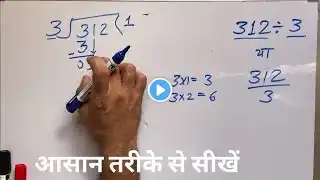 3 ) 312 ( 1
- 3
0 1
3×1 = 3
3×2 = 6
312 ÷ 3
या
312
3
आसान तरीके से सीखें